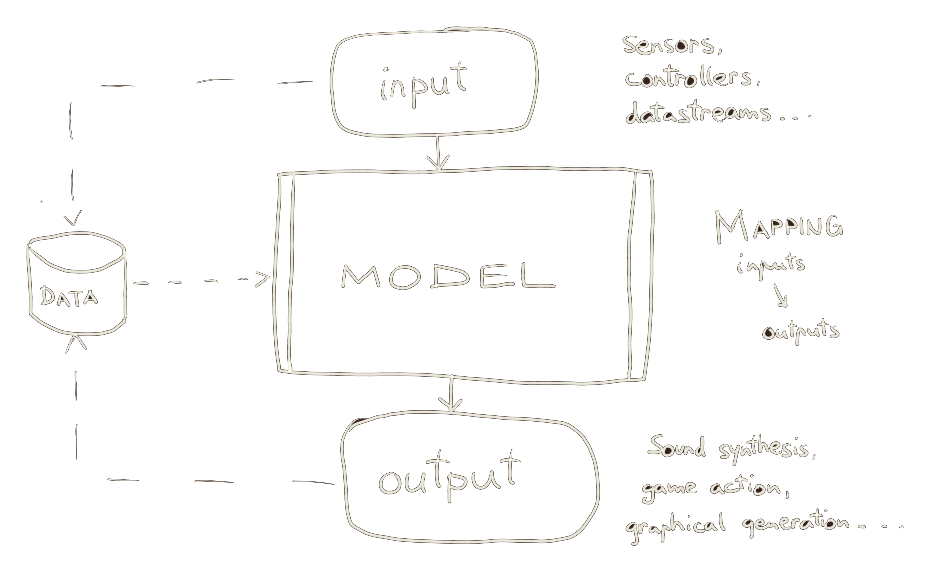 input
Sensors,
controllers,
datastreams...
MODEL
MAPPING
inputs
outputs
DATA
output
Sound synthesis,
game action,
graphical generation....